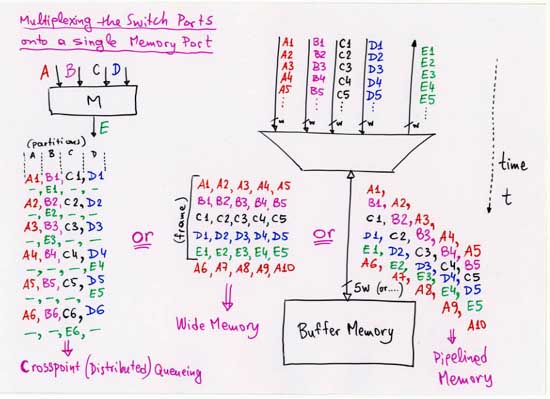 Multiplexing the Switch Ports
onto a single Memory Port
A B C D
M
E
(partitions)
A B C D
A1, B1, C1, D1
–, E1, –, –
A2, B2, C2, D2
–, E2, –, –
A3, B3, C3, D3
–, E3, –, –
A4, B4, C4, D4
–, –, –, E4
A5, B5, C5, D5
–, –, –, E5
A6, B6, C6, D6
–, –, E6, –
Crosspoint (Distributed) Queueing
or
(frame)
A1, A2, A3, A4, A5
B1, B2, B3, B4, B5
C1, C2, C3, C4, C5
D1, D2, D3, D4, D5
E1, E2, E3, E4, E5
A6, A7, A8, A9, A10
Wide Memory
or
A1 B1 C1 D1 E1
A2 B2 C2 D2 E2
A3 B3 C3 D3 E3
A4 B4 C4 D4 E4
A5 B5 C5 D5 E5
w w w w w
5w (or....)
Buffer Memory
time
t
A1,
B1, A2,
C1, B2, A3,
D1, C2, B3, A4,
E1, D2, C3, B4, A5
A6, E2, D3, C4, B5
A7, E3, D4, C5
A8, E4, D5
A9, E5
A10
Pipelined
Memory